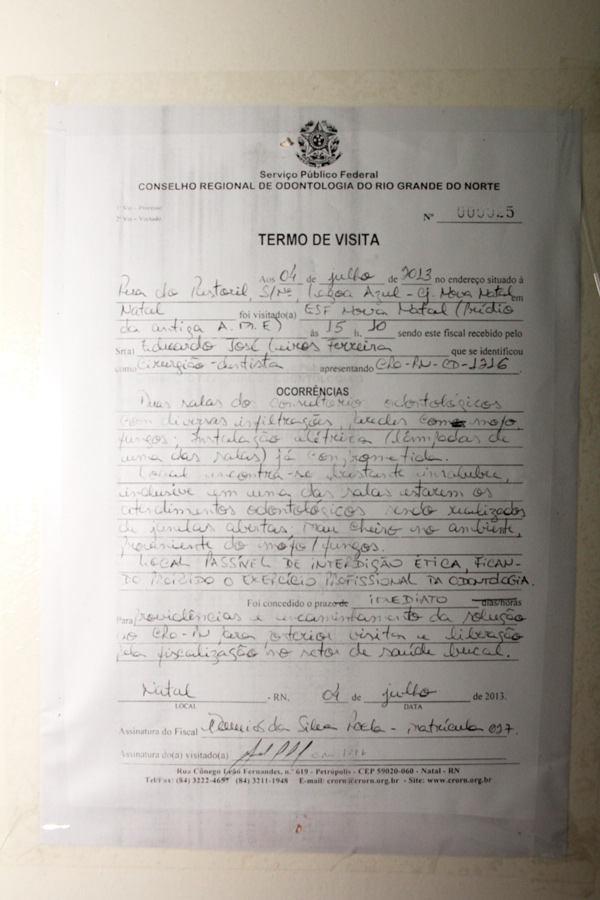 Serviço Público Federal
CONSELHO REGIONAL DE ODONTOLOGIA DO RIO GRANDE DO NORTE
Nº
TERMO DE VISITA
Aos 04 de julho de 2013 no endereço situado à
Rua do Pastoril, S/Nº, Lagoa Azul - Cj. Nova Natal em
Natal foi visitado(a) ESF Nova Natal (Prédio
da antiga A.M.E) às 15 h. 10 sendo este fiscal recebido pelo
Sr(a) Eduardo José Leiros Ferreira que se identificou
como Cirurgião-dentista apresentando CRO-RN-CD-1716
OCORRÊNCIAS
Duas salas do consultório odontológicos
com diversas infiltrações, paredes com mofo,
fungos; Instalação elétrica (lâmpadas de
uma das salas) já comprometida.
Local encontra-se bastante insalubre,
inclusive em uma das salas estarem os
atendimentos odontológicos sendo realizados
de janelas abertas; mau cheiro no ambiente,
proveniente do mofo/fungos.
LOCAL PASSÍVEL DE INTERDIÇÃO ÉTICA, FICAN-
DO PROIBIDO O EXERCÍCIO PROFISSIONAL DA ODONTOLOGIA.
Foi concedido o prazo de IMEDIATO dias/horas
Para providências e encaminhamento da solução
ao CRO-RN para posterior visita e liberação
da fiscalização no setor de saúde bucal.
Natal - RN, 04 de julho de 2013.
LOCAL DATA
Assinatura do Fiscal da Silva - matrícula 017.
Assinatura do(a) visitado(a)
Rua Cônego Leão Fernandes, n.º 619 - Petrópolis - CEP 59020-060 - Natal - RN
Tel/Fax: (84) 3222-4657 (84) 3211-1948 E-mail: crorn@crorn.org.br - Site: www.crorn.org.br